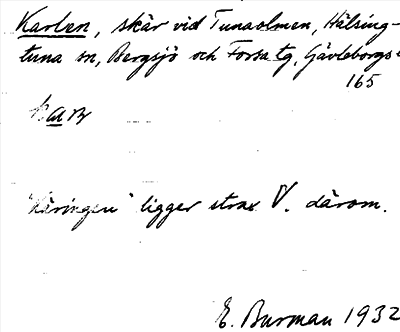 Karlen, skär vid Tunaolmen, Hälsing-
tuna sn, Bergsjö och Forsa tg, Gävleborgs
165
"Käringen" ligger strax V. därom.
E. Burman 1932